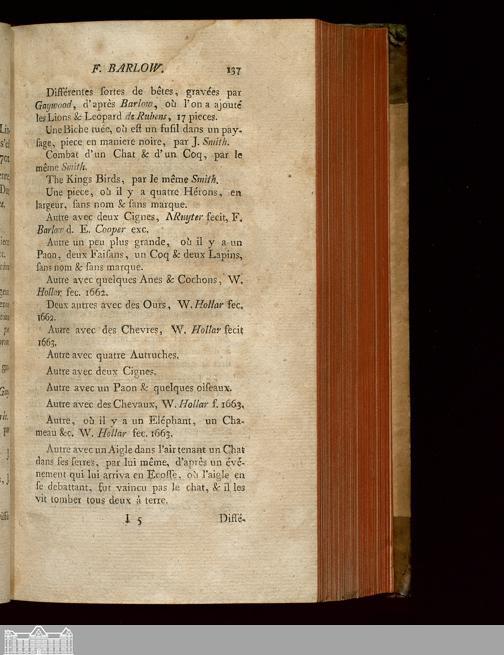 F. BARLOW. 137
Différentes sortes de bêtes, gravées par
Gaywood, d'après Barlow, où l'on a ajouté
les Lions & Leopard de Rubens, 17 pieces.
Une Biche tuée, où est un fusil dans un pay-
sage, piece en maniere noire, par J. Smith.
Combat d'un Chat & d'un Coq, par le
même Smith.
The Kings Birds, par le même Smith.
Une piece, où il y a quatre Hérons, en
largeur, sans nom & sans marque.
Autre avec deux Cignes, Ruyter fecit, F.
Barlow d. E. Cooper exc.
Autre un peu plus grande, où il y a un
Paon, deux Faisans, un Coq & deux Lapins,
sans nom & sans marque.
Autre avec quelques Anes & Cochons, W.
Hollar, fec. 1662.
Deux autres avec des Ours, W. Hollar fec.
1662.
Autre avec des Chevres, W. Hollar fecit
1663.
Autre avec quatre Autruches.
Autre avec deux Cignes.
Autre avec un Paon & quelques oiseaux.
Autre avec des Chevaux, W. Hollar f. 1663.
Autre, où il y a un Eléphant, un Cha-
meau &c. W. Hollar fec. 1663.
Autre avec un Aigle dans l'air tenant un Chat
dans ses serres, par lui même, d'après un évé-
nement qui lui arriva en Ecosse, où l'aigle en
se debattant, fut vaincu pas le chat, & il les
vit tomber tous deux à terre.
I 5 Diffé-